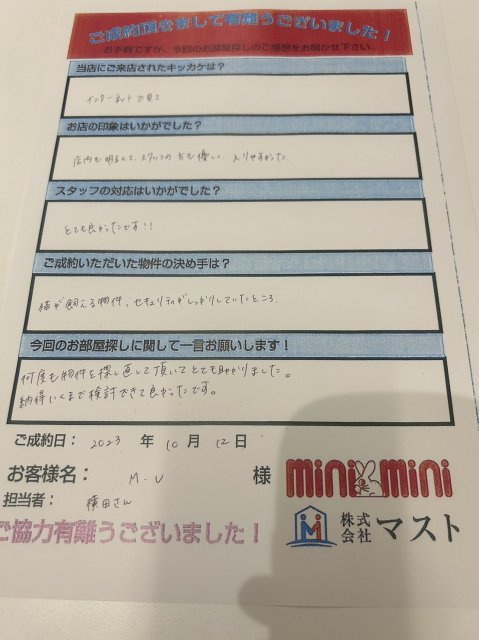 ご成約頂きまして有難うございました！
お手数ですが、今回のお部屋探しのご感想をお聞かせ下さい。
当店にご来店されたキッカケは？
インターネットを見て
お店の印象はいかがでした？
店内も明るくて、スタッフの方も優しく、入りやすかった
スタッフの対応はいかがでした？
とても良かったです!!
ご成約いただいた物件の決め手は？
猫が飼える物件、セキュリティがしっかりしていたところ
今回のお部屋探しに関して一言お願いします！
何度も物件を探し直して頂いてとても助かりました。
納得いくまで検討できて良かったです。
ご成約日： 2023 年 10 月 12 日
お客様名： M.U 様
minimini
担当者： 横田さん
株式会社 マスト
ご協力有難うございました！